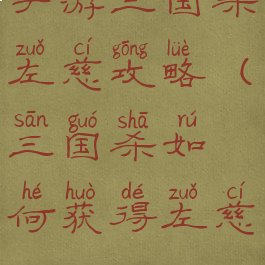 手游三国杀
zuǒ cí gōng lüè
左慈攻略（
sān guó shā rú
三国杀如
hé huò dé zuǒ cí
何获得左慈